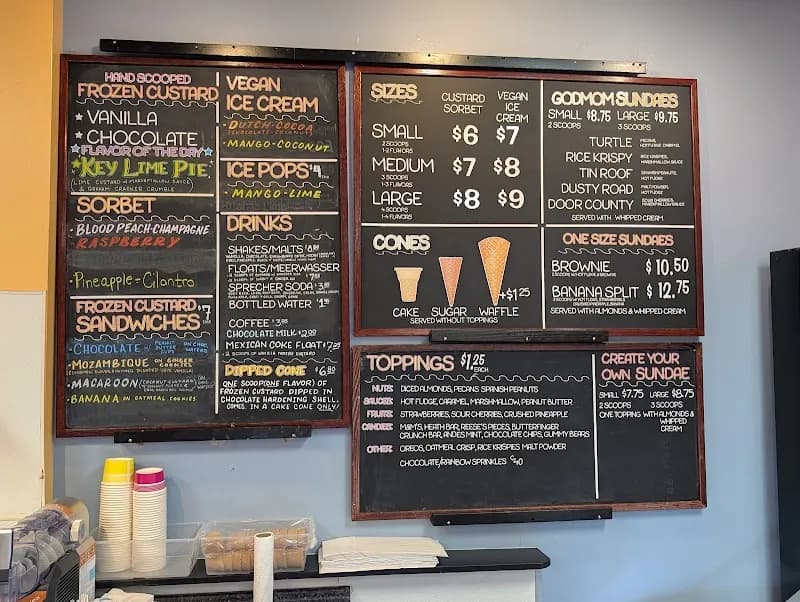 HAND SCOOPED
FROZEN CUSTARD
★ VANILLA
★ CHOCOLATE
★FLAVOR OF THE DAY★
★KEY LIME PIE
LIME CUSTARD w/ MARSHMALLOW SAUCE
& GRAHAM CRACKER CRUMBLE
SORBET
• BLOOD PEACH-CHAMPAGNE
RASPBERRY
• Pineapple - Cilantro
FROZEN CUSTARD
SANDWICHES $7
• CHOCOLATE w/ PEANUT BUTTER CUPS ON CHOC. WAFERS
• MOZAMBIQUE ON GINGER COOKIES
• MACAROON
• BANANA ON OATMEAL COOKIES
VEGAN
ICE CREAM
• DUTCH-COCOA
• MANGO-COCONUT
ICE POPS $4
• MANGO-LIME
DRINKS
SHAKES/MALTS
FLOATS/MEERWASSER
SPRECHER SODA
BOTTLED WATER
COFFEE
CHOCOLATE MILK
MEXICAN COKE FLOAT
2 SCOOPS OF VANILLA FROZEN CUSTARD
DIPPED CONE
ONE SCOOP(ONE FLAVOR) OF
FROZEN CUSTARD DIPPED IN
CHOCOLATE HARDENING SHELL.
COMES IN A CAKE CONE ONLY!
SIZES
CUSTARD SORBET
VEGAN ICE CREAM
SMALL $6 $7
2 SCOOPS
1-2 FLAVORS
MEDIUM $7 $8
3 SCOOPS
1-3 FLAVORS
LARGE $8 $9
4 SCOOPS
1-4 FLAVORS
CONES
+$1.25
CAKE SUGAR WAFFLE
SERVED WITHOUT TOPPINGS
GODMOM SUNDAES
SMALL $8.75 LARGE $9.75
2 SCOOPS 3 SCOOPS
TURTLE
RICE KRISPY
TIN ROOF
DUSTY ROAD
DOOR COUNTY
SERVED WITH WHIPPED CREAM
ONE SIZE SUNDAES
BROWNIE $10.50
BANANA SPLIT $12.75
SERVED WITH ALMONDS & WHIPPED CREAM
TOPPINGS $1.25 EACH
NUTS: DICED ALMONDS, PECANS SPANISH PEANUTS
SAUCES: HOT FUDGE, CARAMEL, MARSHMALLOW, PEANUT BUTTER
FRUITS: STRAWBERRIES, SOUR CHERRIES, CRUSHED PINEAPPLE
CANDIES: M&M'S, HEATH BAR, REESE'S PIECES, BUTTERFINGER
CRUNCH BAR, ANDES MINT, CHOCOLATE CHIPS, GUMMY BEARS
OTHER: OREOS, OATMEAL CRISP, RICE KRISPIES MALT POWDER
CHOCOLATE/RAINBOW SPRINKLES
CREATE YOUR
OWN SUNDAE
SMALL $7.75 LARGE $8.75
2 SCOOPS 3 SCOOPS
ONE TOPPING WITH ALMONDS &
WHIPPED
CREAM